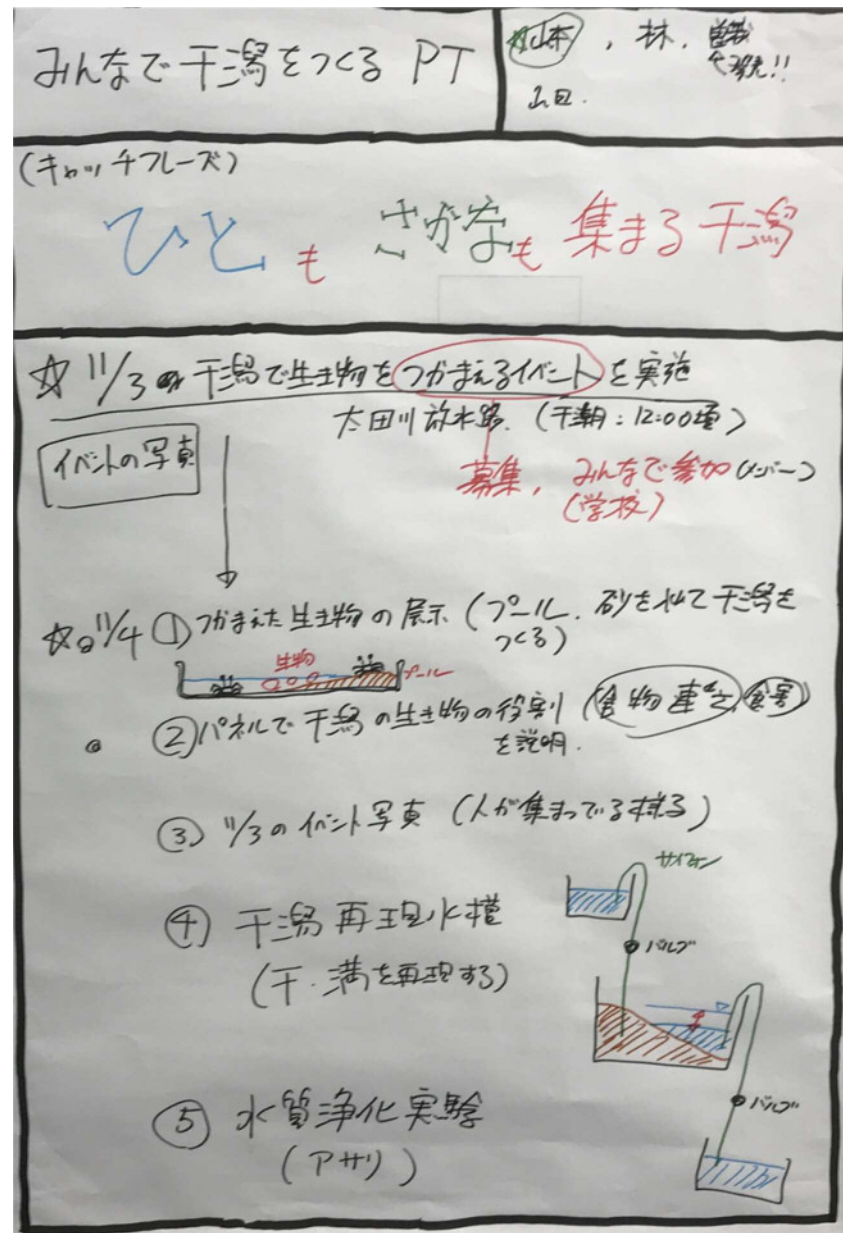 みんなで干潟をつくる PT
☆山本, 林,
発!!
山田.
(キャッチフレーズ)
ひとも さかなも 集まる干潟
☆ 11/3 の 干潟で生き物をつかまえるイベントを実施
太田川放水路. (干潮:12:00頃)
イベントの写真
募集, みんなで参加(メンバー)
(学校)
☆ 11/4 ① つかまえた生き物の展示 (プール. 砂を 干潟を
つくる)
生物
プール
② パネルで干潟の生き物の役割 (食物連さ, 食害)
を説明.
③ 11/3のイベント写真 (人が集まってる様子)
サイフォン
④ 干潟再現水槽
バルブ
(干・満を再現する)
バルブ
⑤ 水質浄化実験
(アサリ)